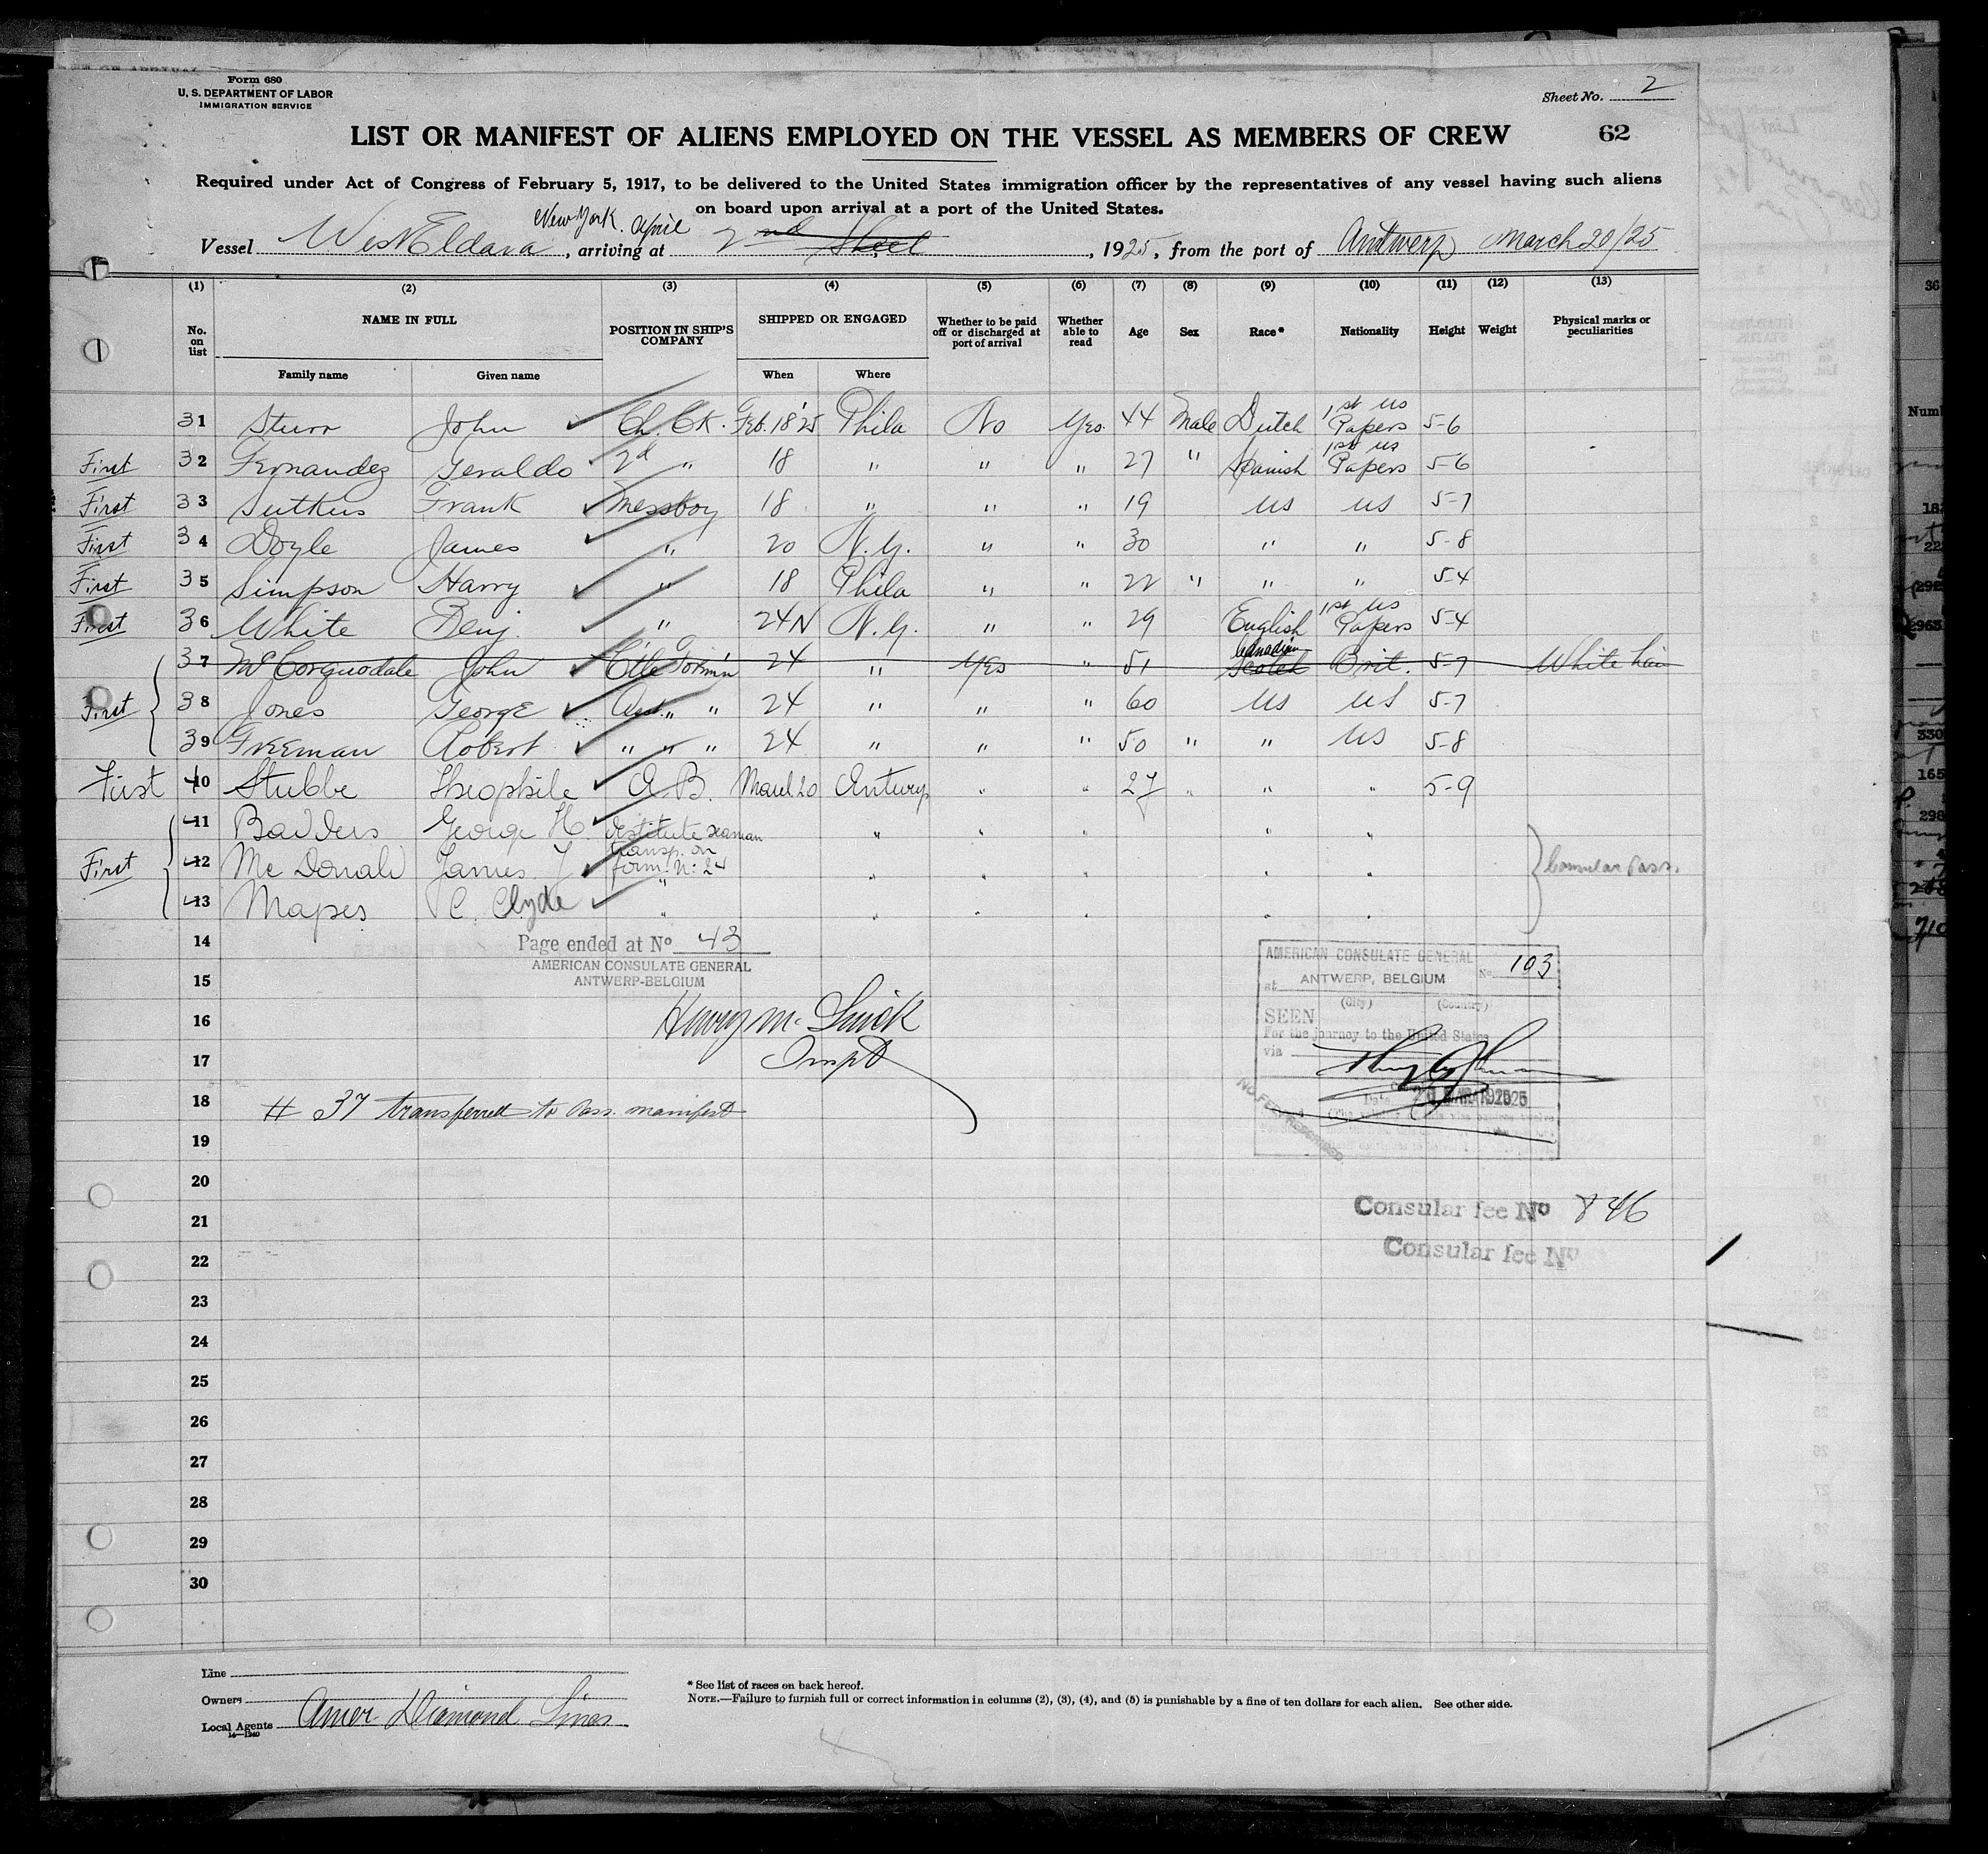 Form 680
U. S. DEPARTMENT OF LABOR
IMMIGRATION SERVICE
Sheet No. 2
LIST OR MANIFEST OF ALIENS EMPLOYED ON THE VESSEL AS MEMBERS OF CREW
62
Required under Act of Congress of February 5, 1917, to be delivered to the United States immigration officer by the representatives of any vessel having such aliens
on board upon arrival at a port of the United States.
New York. April
Vessel West Eldara, arriving at 2nd Sheet, 1925, from the port of Antwerp March 20/25
(1) (2) (3) (4) (5) (6) (7) (8) (9) (10) (11) (12) (13)
No. on list NAME IN FULL POSITION IN SHIP'S COMPANY SHIPPED OR ENGAGED Whether to be paid off or discharged at port of arrival Whether able to read Age Sex Race* Nationality Height Weight Physical marks or peculiarities
Family name Given name When Where
31 Sturr John Ch. Ck. Feb. 18 '25 Phila No Yes 44 Male Dutch 1st US Papers 5-6
First 32 Fernandez Geraldo 2d " 18 " " " 27 " Spanish 1st US Papers 5-6
First 33 Sutkus Frank Messboy 18 " " " 19 US US 5-7
First 34 Doyle James " 20 N.Y. " " 30 " " 5-8
First 35 Simpson Harry " 18 Phila " " 22 " " " 5-4
First 36 White Benj. " 24 N N.Y. " " 29 English 1st US Papers 5-4
37 McCorquodale John Ctle Form'n 24 " Yes " 51 Canadian Scotch Brit. 5-7 White hair
First 38 Jones George Asst. " " 24 " " " 60 US US 5-7
39 Freeman Robert " " " 24 " " " 50 " " US 5-8
First 40 Stubbe Theophile A.B. March 20 Antwerp " " 27 " " " 5-9
41 Badders George H. destitute seaman " " " " "
First 42 Mc Donald James J transp. on form N: 24 " " " " " Consular Pass.
43 Mapes C. Clyde " " " " " "
14 Page ended at No 43
AMERICAN CONSULATE GENERAL
ANTWERP-BELGIUM
15
16
Inspt
17
18 # 37 transferred to Pass. manifest
AMERICAN CONSULATE GENERAL
at ANTWERP, BELGIUM No. 103
(City) (Country)
SEEN
For the journey to the United States
via
Date
NO FEE PRESCRIBED
19
20
Consular fee No 846
21
Consular fee No
22
23
24
25
26
27
28
29
30
Line
Owners
Local Agents Amer Diamond Lines
14—1240
* See list of races on back hereof.
NOTE.—Failure to furnish full or correct information in columns (2), (3), (4), and (5) is punishable by a fine of ten dollars for each alien. See other side.